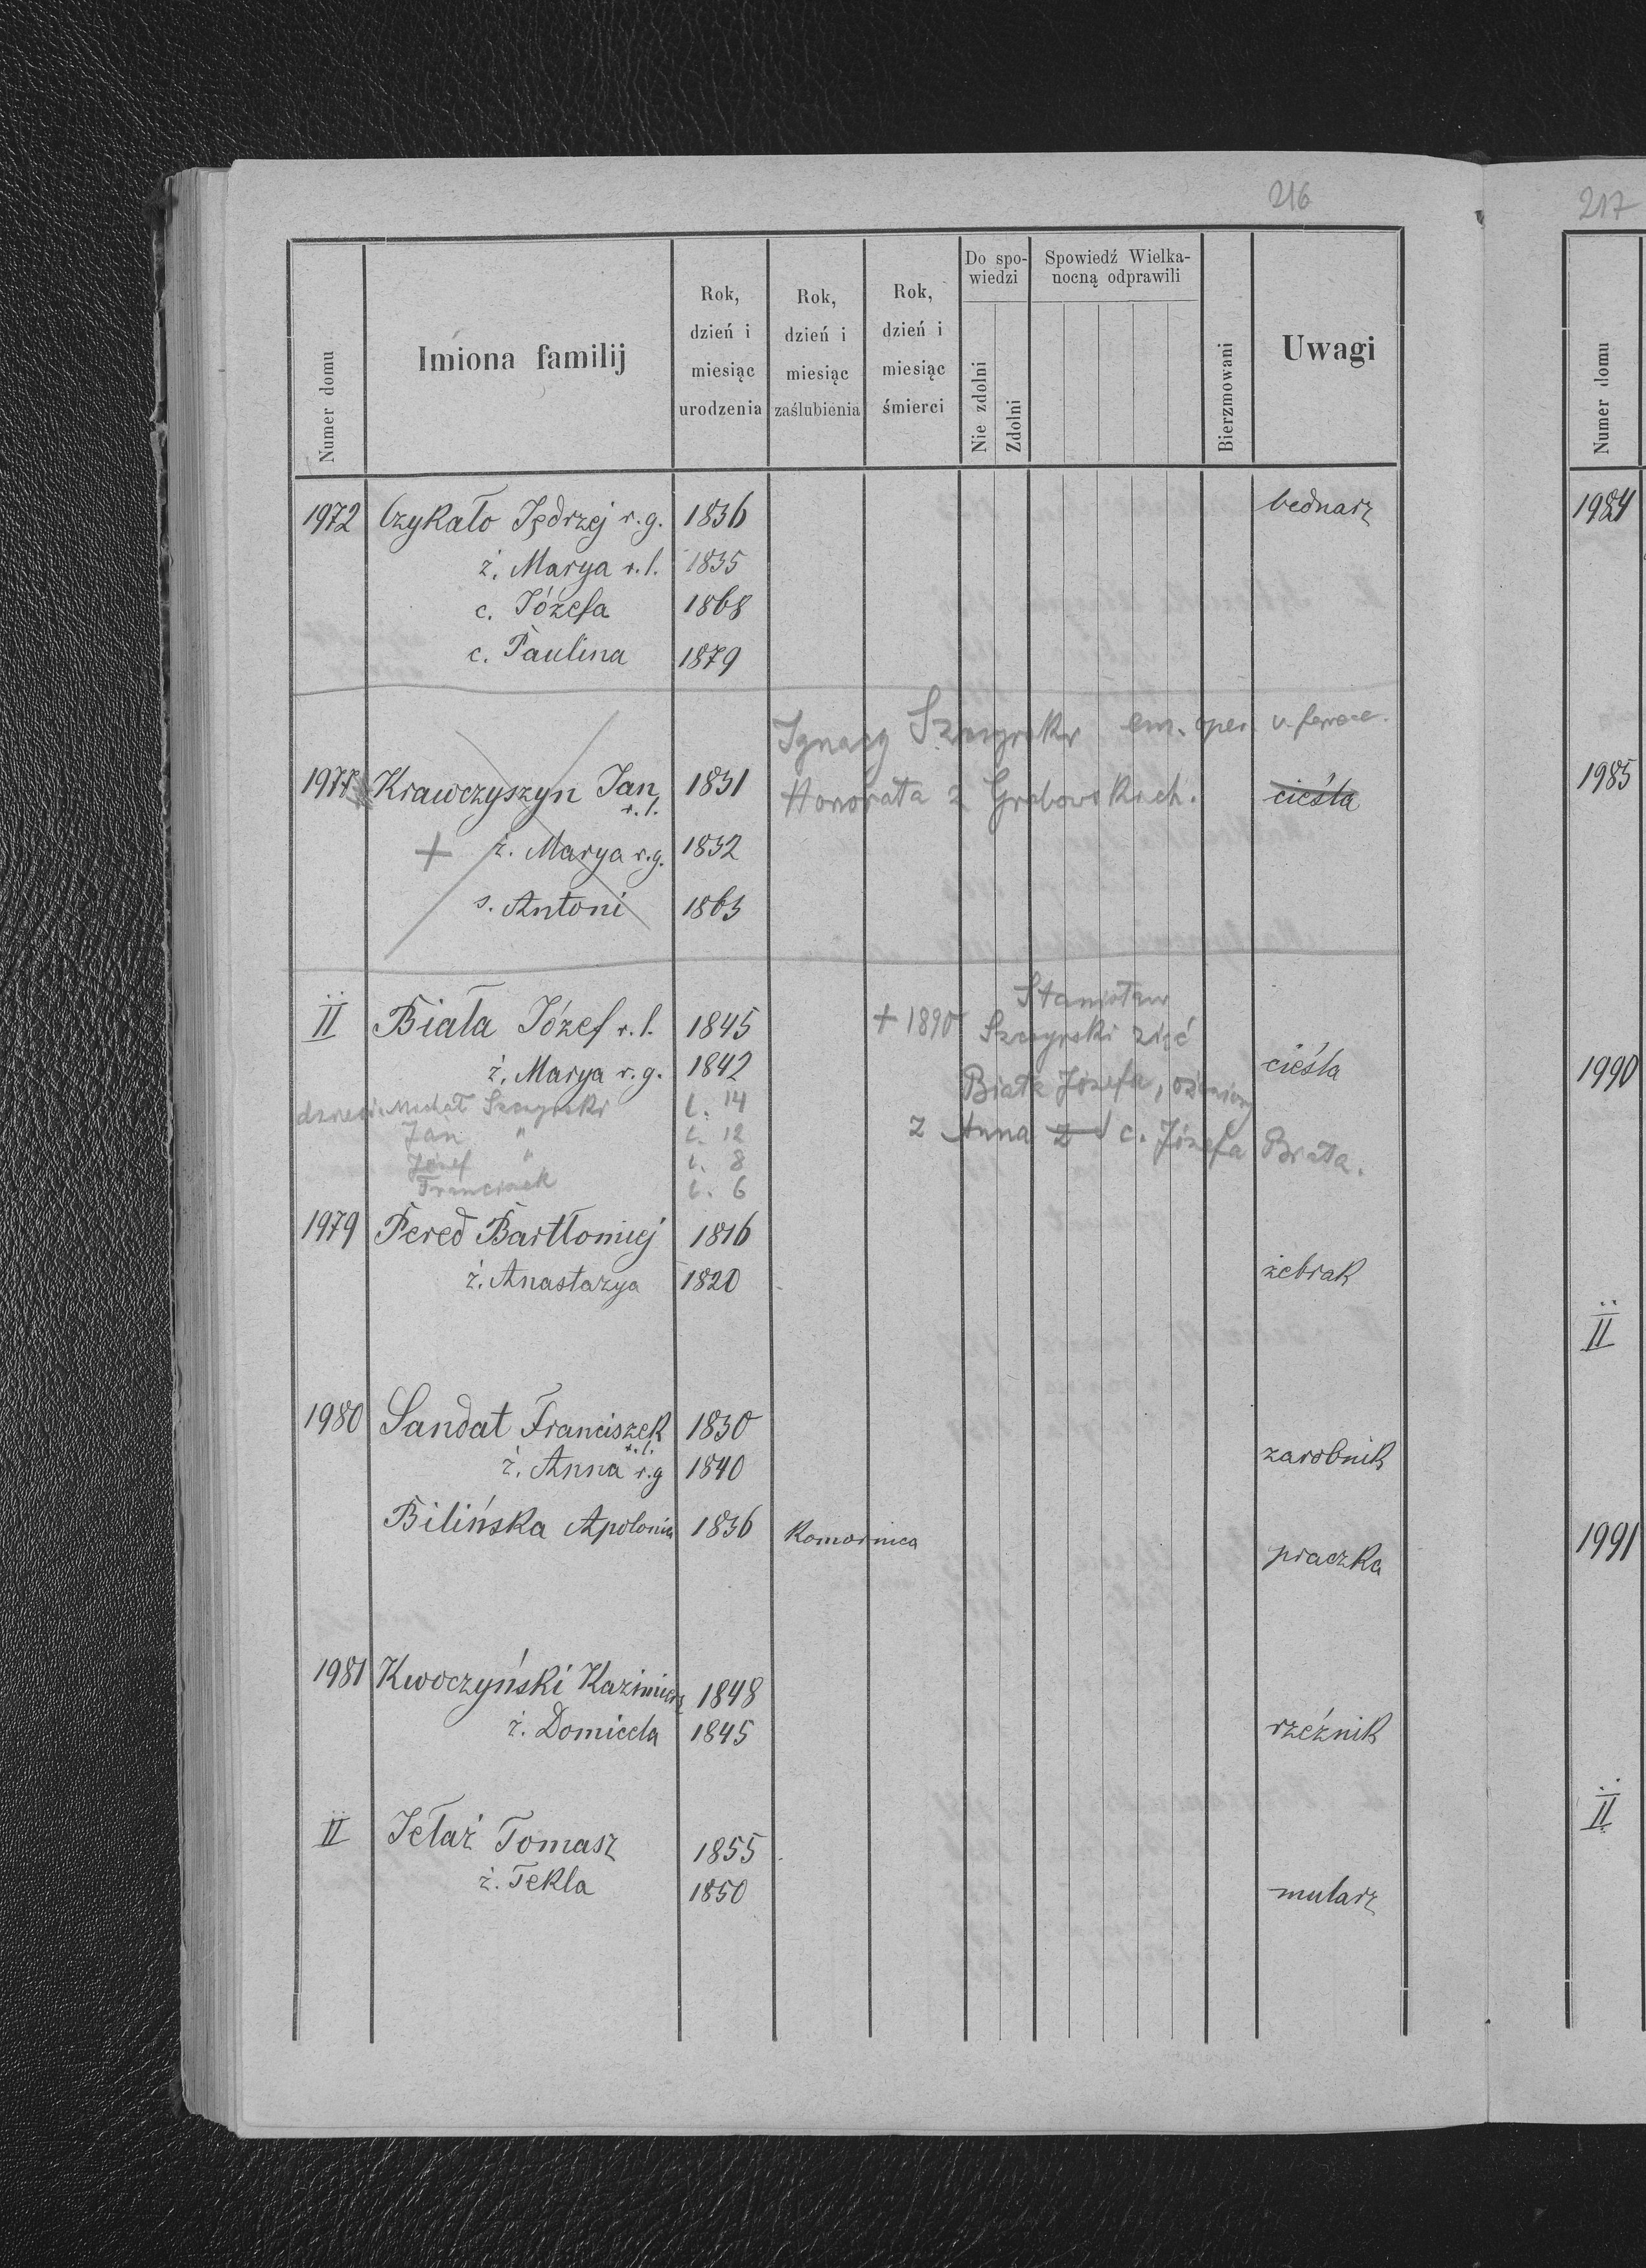 216
Numer domu
Imiona familij
Rok, dzień i miesiąc urodzenia
Rok, dzień i miesiąc zaślubienia
Rok, dzień i miesiąc śmierci
Do spo-
wiedzi
Nie zdolni
Zdolni
Spowiedź Wielka-
nocną odprawili
Bierzmowani
Uwagi
1972 Czykało Jędrzej r.g. 1836 bednarz
ż. Marya r.l. 1835
c. Józefa 1868
c. Paulina 1879
Ignacy em.
1977 Krawczyszyn Jan r.l. 1831 Honorata z Grabowskich. cieśla
+ ż. Marya r.g. 1832
s. Antoni 1863
Stanisław
II Biała Józef r.l. 1845 + 1890 Szczyrski zięć
ż. Marya r.g. 1842 cieśla
Biała Józefa, ożeniony
dzieci: Michał Szczyrski l. 14
z Anna z c. Józefa Biała.
Jan " l. 12
Józef " l. 8
Franciszek l. 6
1979 Pered Bartłomiej 1816
ż. Anastazya 1820 żebrak
1980 Sandat Franciszek r.l. 1830
ż. Anna r.g 1840 zarobnik
Bilińska Apolonia 1836 Komornica praczka
1981 Kwoczyński Kazimierz 1848
ż. Domicela 1845 rzeźnik
II Jełaż Tomasz 1855
ż. Tekla 1850 mularz
217
Numer domu
1984
1985
1990
II
1991
II